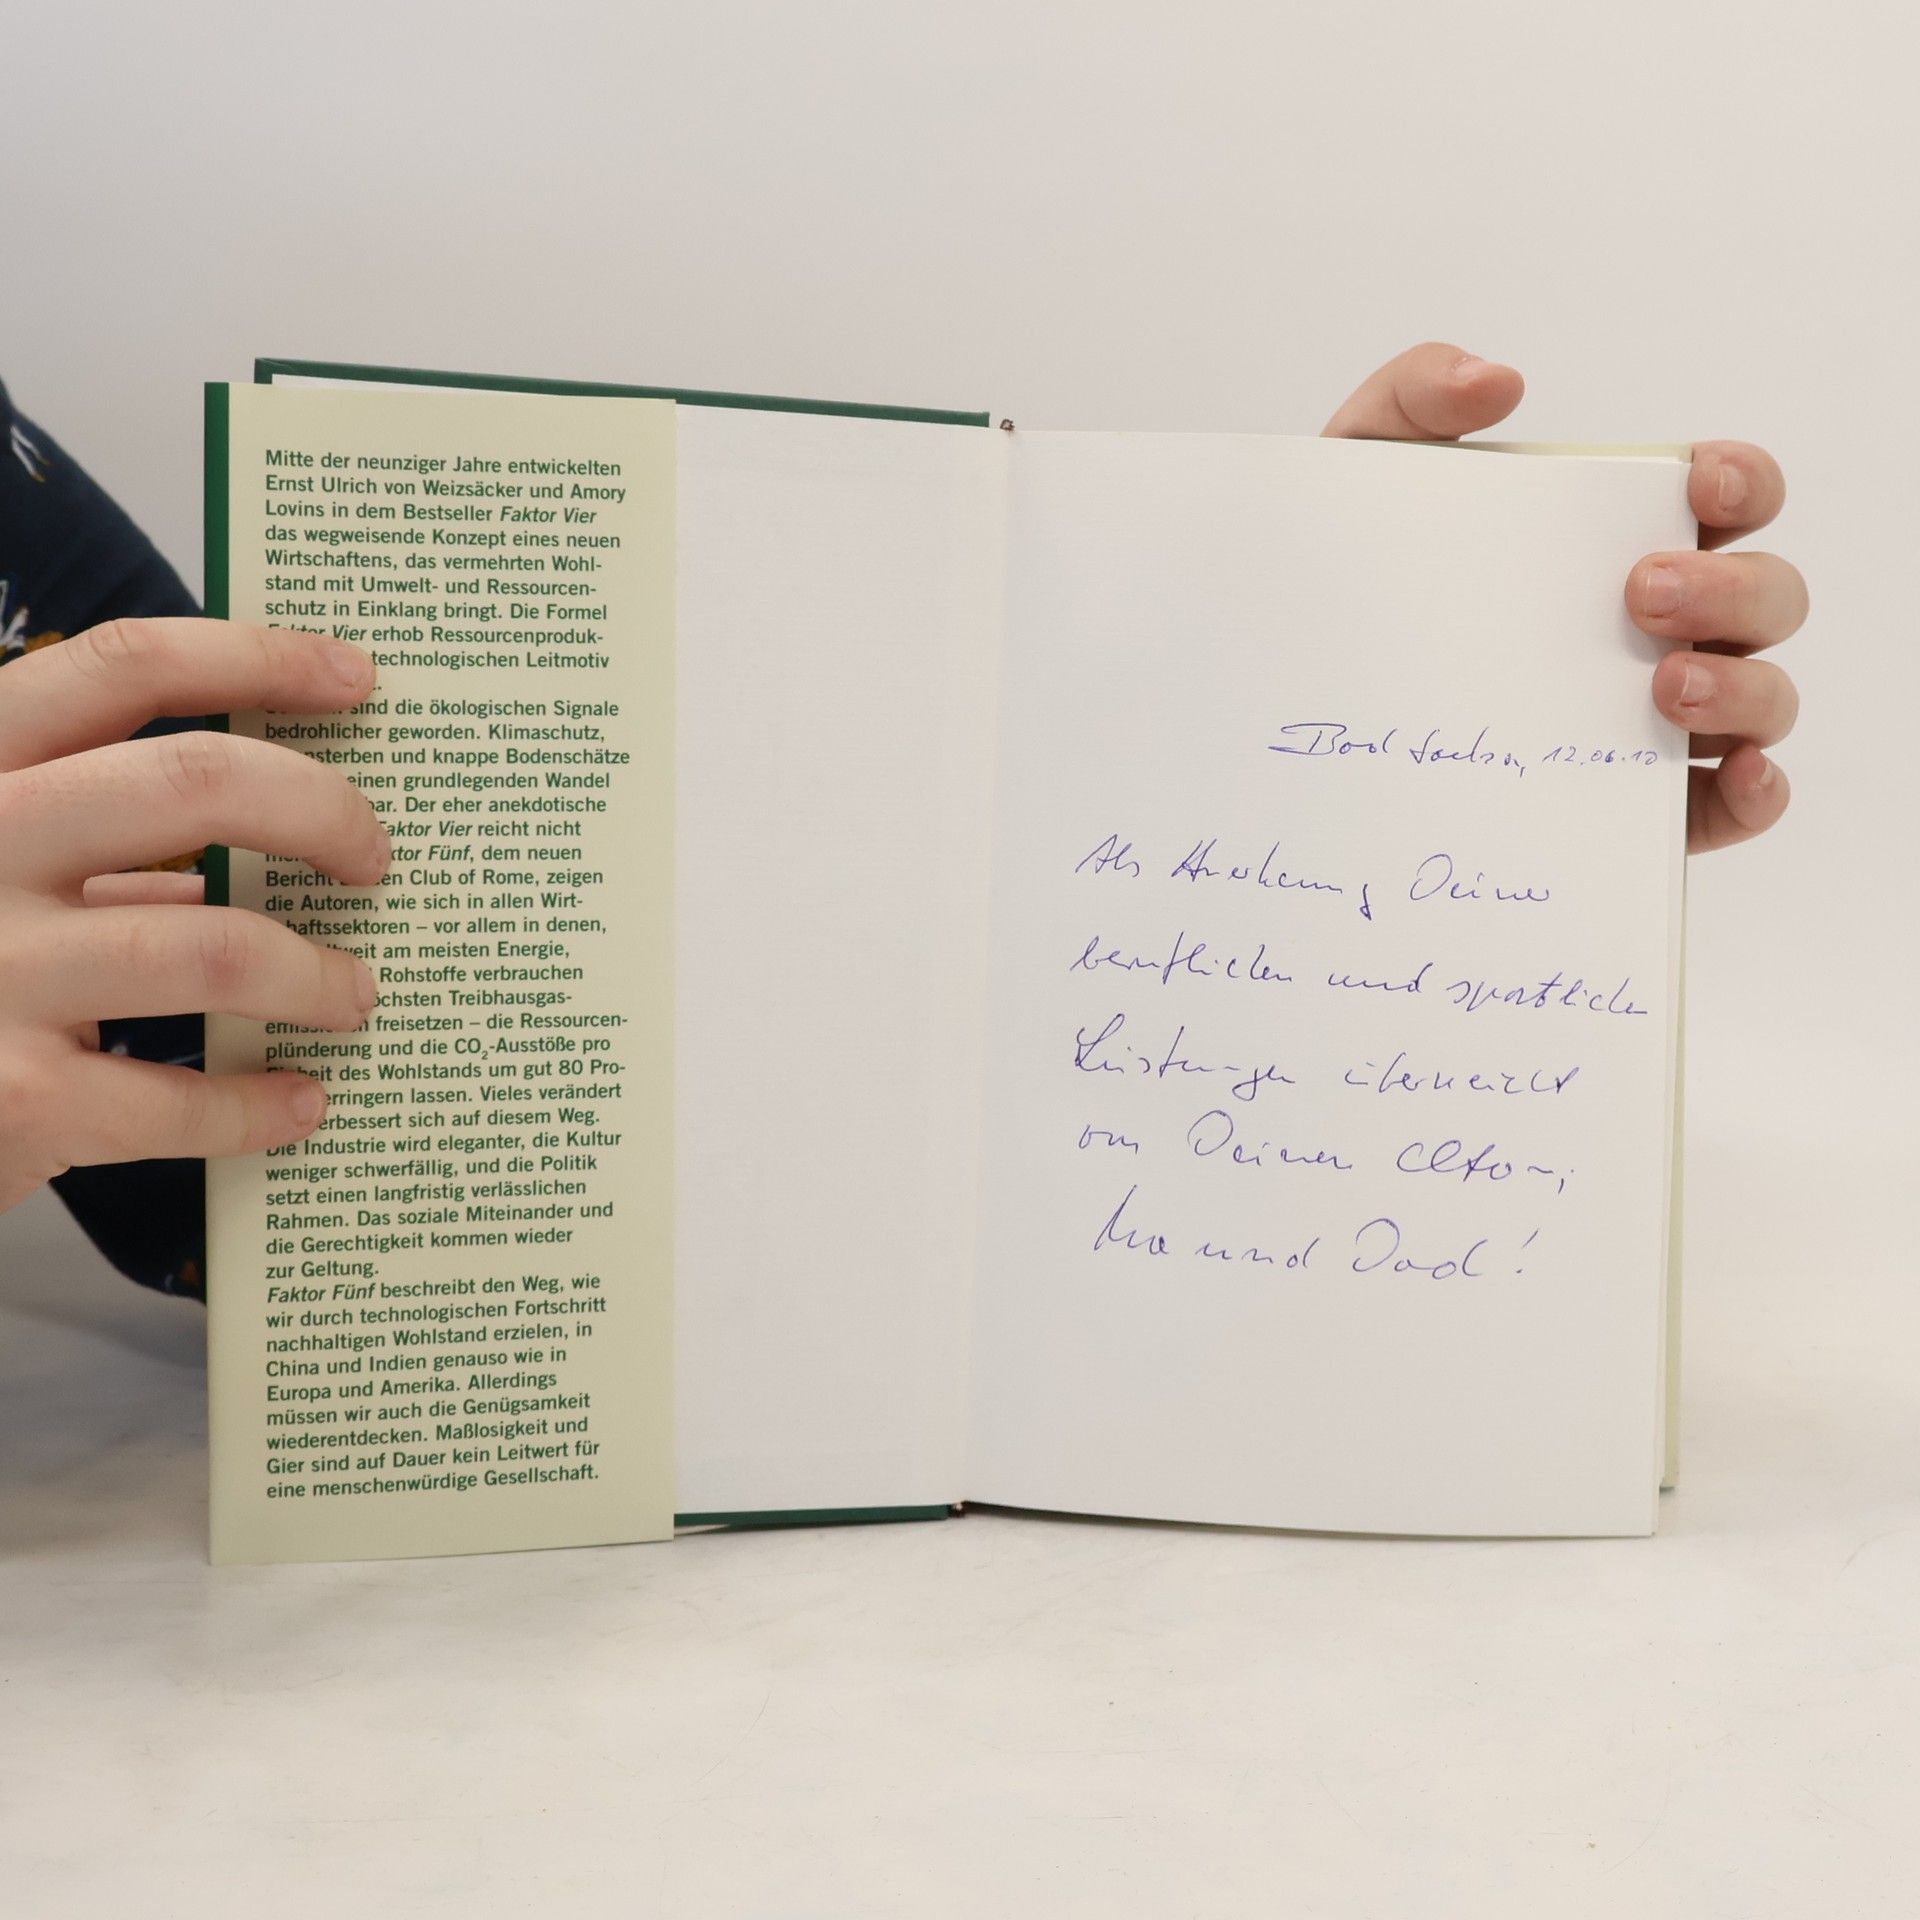 Mitte der neunziger Jahre entwickelten
Ernst Ulrich von Weizsäcker und Amory
Lovins in dem Bestseller Faktor Vier
das wegweisende Konzept eines neuen
Wirtschaftens, das vermehrten Wohl-
stand mit Umwelt- und Ressourcen-
schutz in Einklang bringt. Die Formel
Faktor Vier erhob Ressourcenproduk-
technologischen Leitmotiv
sind die ökologischen Signale
bedrohlicher geworden. Klimaschutz,
und knappe Bodenschätze
einen grundlegenden Wandel
Der eher anekdotische
Faktor Vier reicht nicht
Faktor Fünf, dem neuen
Bericht Club of Rome, zeigen
die Autoren, wie sich in allen Wirt-
schaftssektoren – vor allem in denen,
am meisten Energie,
Rohstoffe verbrauchen
höchsten Treibhausgas-
emissionen freisetzen – die Ressourcen-
plünderung und die CO₂-Ausstöße pro
Einheit des Wohlstands um gut 80 Pro-
verringern lassen. Vieles verändert
verbessert sich auf diesem Weg.
Die Industrie wird eleganter, die Kultur
weniger schwerfällig, und die Politik
setzt einen langfristig verlässlichen
Rahmen. Das soziale Miteinander und
die Gerechtigkeit kommen wieder
zur Geltung.
Faktor Fünf beschreibt den Weg, wie
wir durch technologischen Fortschritt
nachhaltigen Wohlstand erzielen, in
China und Indien genauso wie in
Europa und Amerika. Allerdings
müssen wir auch die Genügsamkeit
wiederentdecken. Maßlosigkeit und
Gier sind auf Dauer kein Leitwert für
eine menschenwürdige Gesellschaft.
Bad Sachsa, 12.06.10
Als Anerkennung Deiner
beruflichen und sportlichen
Leistungen überreicht
von Deinen Eltern,
und Dad!